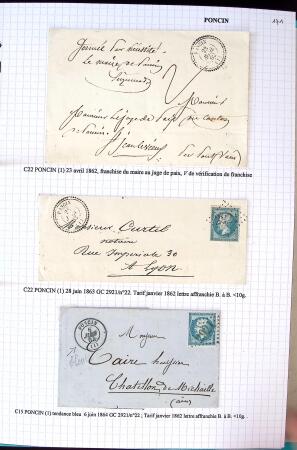 PONCIN
Fermée par nécessité
Le maire de Poncin
Monsieur
Monsieur le juge de Paix du canton
de Poncin
par Pont d'Ain
C22 PONCIN (1) 23 avril 1862, franchise du maire au juge de paix, V de vérification de franchise
Monsieur Curtel
notaire
Rue Impériale 30
A Lyon
C22 PONCIN (1) 28 juin 1863 GC 2921/n°22. Tarif janvier 1862 lettre affranchie B. à B. <10g.
PONCIN
Monsieur
Caire huissier
Chatillon de Michaille
(ain)
C15 PONCIN (1) tendance bleu 6 juin 1864 GC 2921/n°22 ; Tarif janvier 1862 lettre affranchie B. à B. <10g.